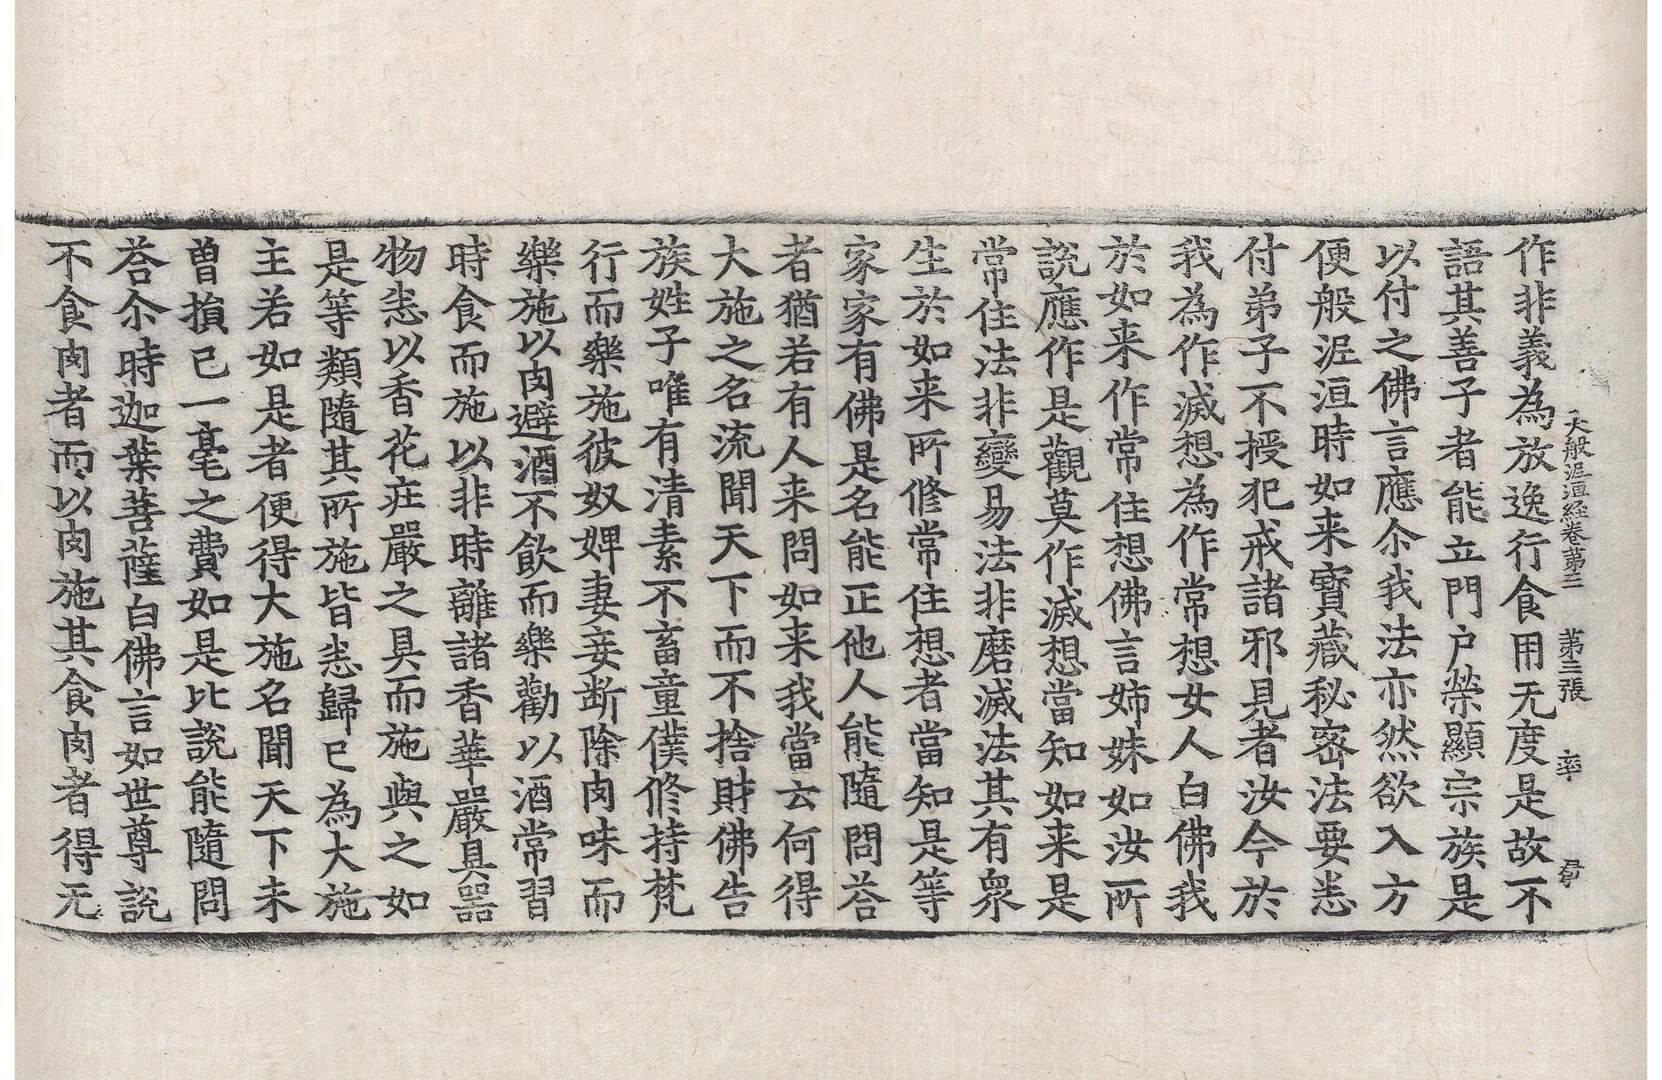 大般泥洹経卷苐三 苐三張 率
作非義為放逸行食用无度是故不
語其善子者能立門戶榮顯宗族是
以付之佛言應尒我法亦然欲入方
便般泥洹時如来寶藏秘密法要悉
付弟子不授犯戒諸邪見者汝今於
我為作滅想為作常想女人白佛我
於如来作常住想佛言姉妹如汝所
說應作是觀莫作滅想當知如来是
常住法非變易法非磨滅法其有衆
生於如来所修常住想者當知是等
家家有佛是名能正他人能隨問荅
者猶若有人来問如来我當云何得
大施之名流聞天下而不捨財佛告
族姓子唯有清素不畜童僕修持梵
行而樂施彼奴婢妻妾断除肉味而
樂施以肉避酒不飲而樂勸以酒常習
時食而施以非時離諸香華嚴具器
物悉以香花庄嚴之具而施與之如
是等類隨其所施皆悉歸已為大施
主若如是者便得大施名聞天下未
曾損已一毫之費如是比說能隨問
荅尒時迦葉菩薩白佛言如世尊說
不食肉者而以肉施其食肉者得无